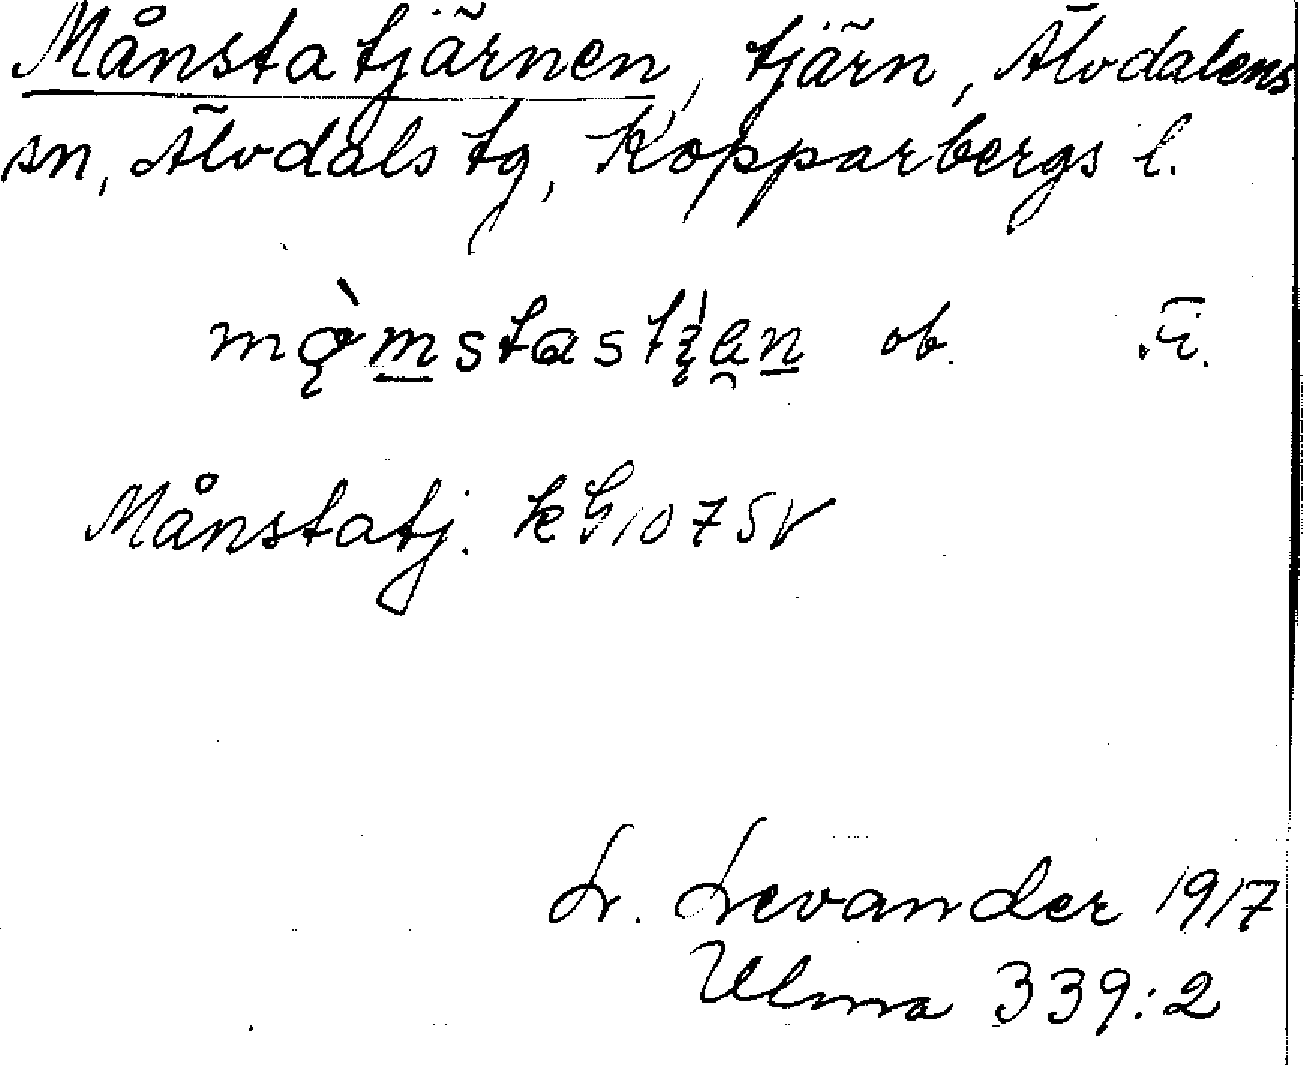 Månstatjärnen, tjärn, Älvdalens
sn, Älvdals tg, Kopparbergs l.
ob. Fi.
Månstatj. kG1075V
L. Levander 1917
Ulma 339:2